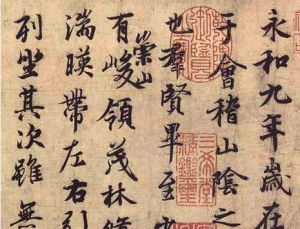 永和九年歲在
于會稽山陰之
也羣賢畢至
有崇山峻領茂林脩
湍暎帶左右引
列坐其次雖無